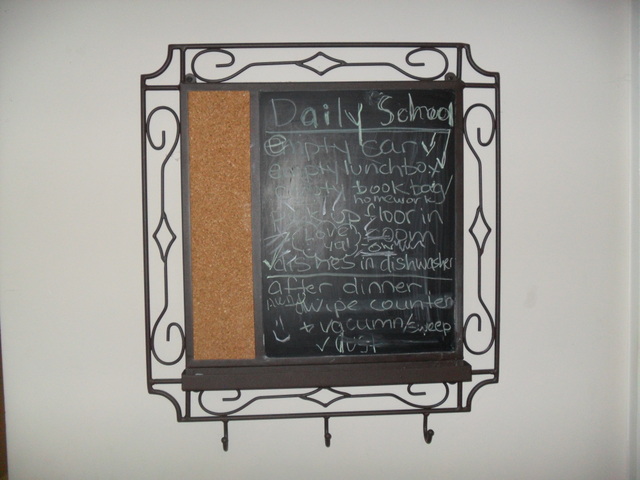 Daily School
empty car
empty lunchbox
book bag/
homework
pick up floor in
room
dishes in dishwasher
after dinner
wipe counter
+ vacumn/sweep
dust